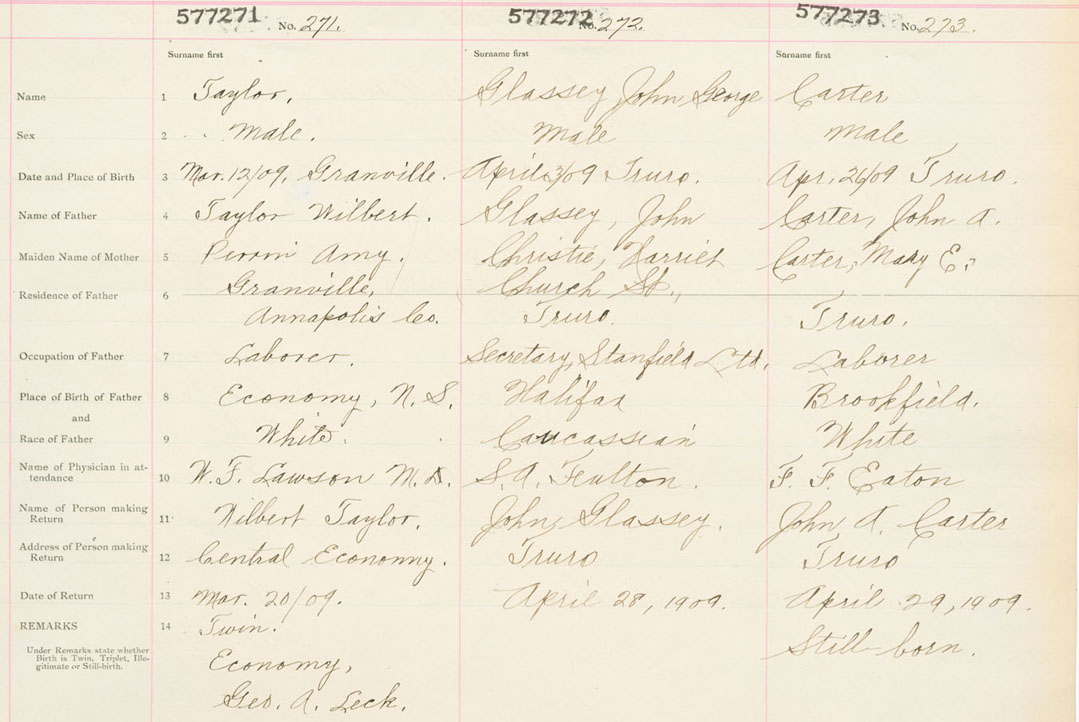 577271 No. 271. 577272 No. 272. 577273 No. 273.
Surname first Surname first Surname first
Name 1 Taylor. Glassey John George Carter
Sex 2 Male. Male Male
Date and Place of Birth 3 Mar. 12/09, Granville. April 3/09 Truro. Apr. 26/09 Truro.
Name of Father 4 Taylor Wilbert. Glassey, John Carter, John A.
Maiden Name of Mother 5 Perrin Amy. Christie, Harriet Carter, Mary E.
Residence of Father 6 Granville, Church St.,
Annapolis Co. Truro. Truro.
Occupation of Father 7 Laborer. Secretary, Stanfield Ltd. Laborer
Place of Birth of Father 8 Economy, N. S. Halifax Brookfield.
and
Race of Father 9 White. Caucassian White
Name of Physician in at-
tendance 10 W. F. Lawson M. D. S. A. Fulton. F. F. Eaton
Name of Person making
Return 11 Wilbert Taylor. John Glassey. John A. Carter
Address of Person making
Return 12 Central Economy. Truro Truro
Date of Return 13 Mar. 20/09. April 28, 1909. April 29, 1909.
REMARKS 14 Twin. Still born.
Under Remarks state whether
Birth is Twin, Triplet, Ille-
gitimate or Still-birth.
Economy,
Geo. A. Leck.